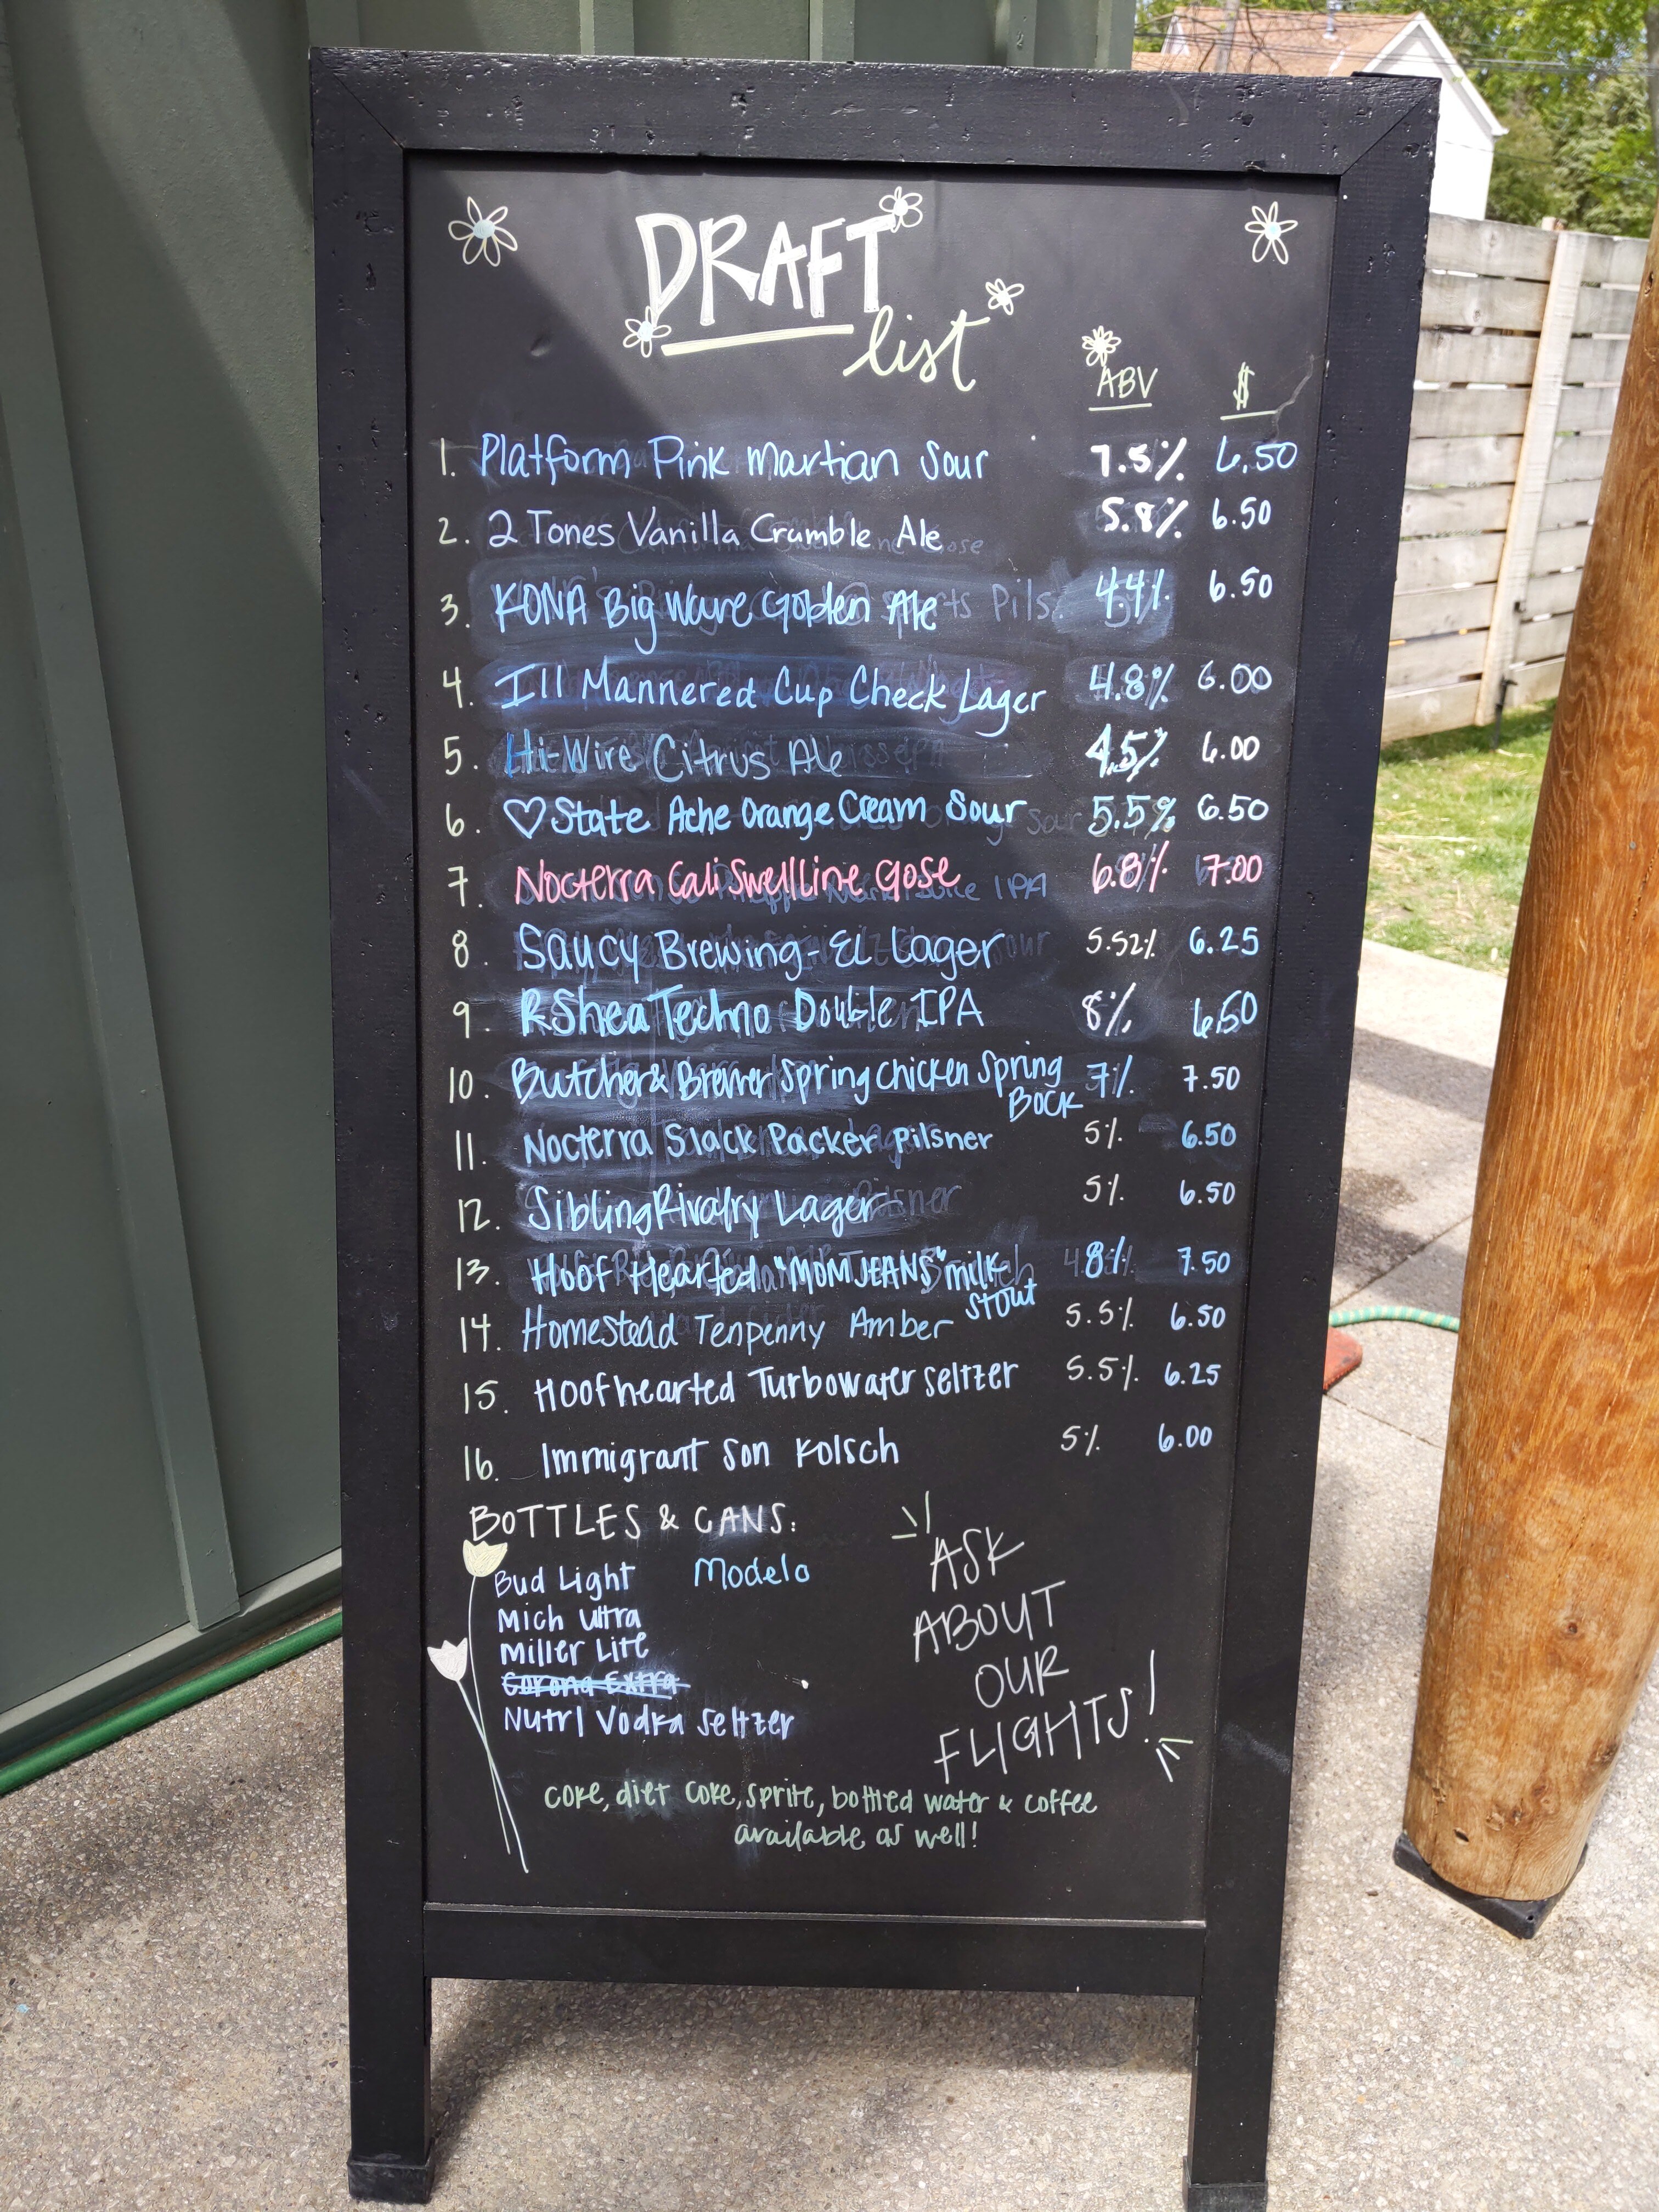 DRAFT
list
ABV $
1. Platform Pink Martian Sour 7.5% 6.50
2. 2 Tones Vanilla Crumble Ale 5.8% 6.50
3. KONA Big Wave Golden Ale 4.4% 6.50
4. Ill Mannered Cup Check Lager 4.8% 6.00
5. Hi-Wire Citrus Ale 4.5% 6.00
6. ♡State Ache Orange Cream Sour 5.5% 6.50
7. Nocterra Cali Swell Line Gose 6.8% 7.00
8. Saucy Brewing - EL Lager 5.52% 6.25
9. RShea Techno Double IPA 8% 6.50
10. Butcher & Brewer Spring Chicken Spring 7% 7.50
Bock
11. Nocterra Slack Packer Pilsner 5% 6.50
12. Sibling Rivalry Lager 5% 6.50
13. Hoof Hearted "MOM JEANS" milk 8% 7.50
stout
14. Homestead Tenpenny Amber 5.5% 6.50
15. Hoofhearted Turbowater seltzer 5.5% 6.25
16. Immigrant Son Kolsch 5% 6.00
BOTTLES & CANS:
Bud Light Modelo
Mich Ultra
Miller Lite
Corona Extra
Nutrl Vodka Seltzer
ASK
ABOUT
OUR
FLIGHTS!
coke, diet coke, sprite, bottled water & coffee
available as well!